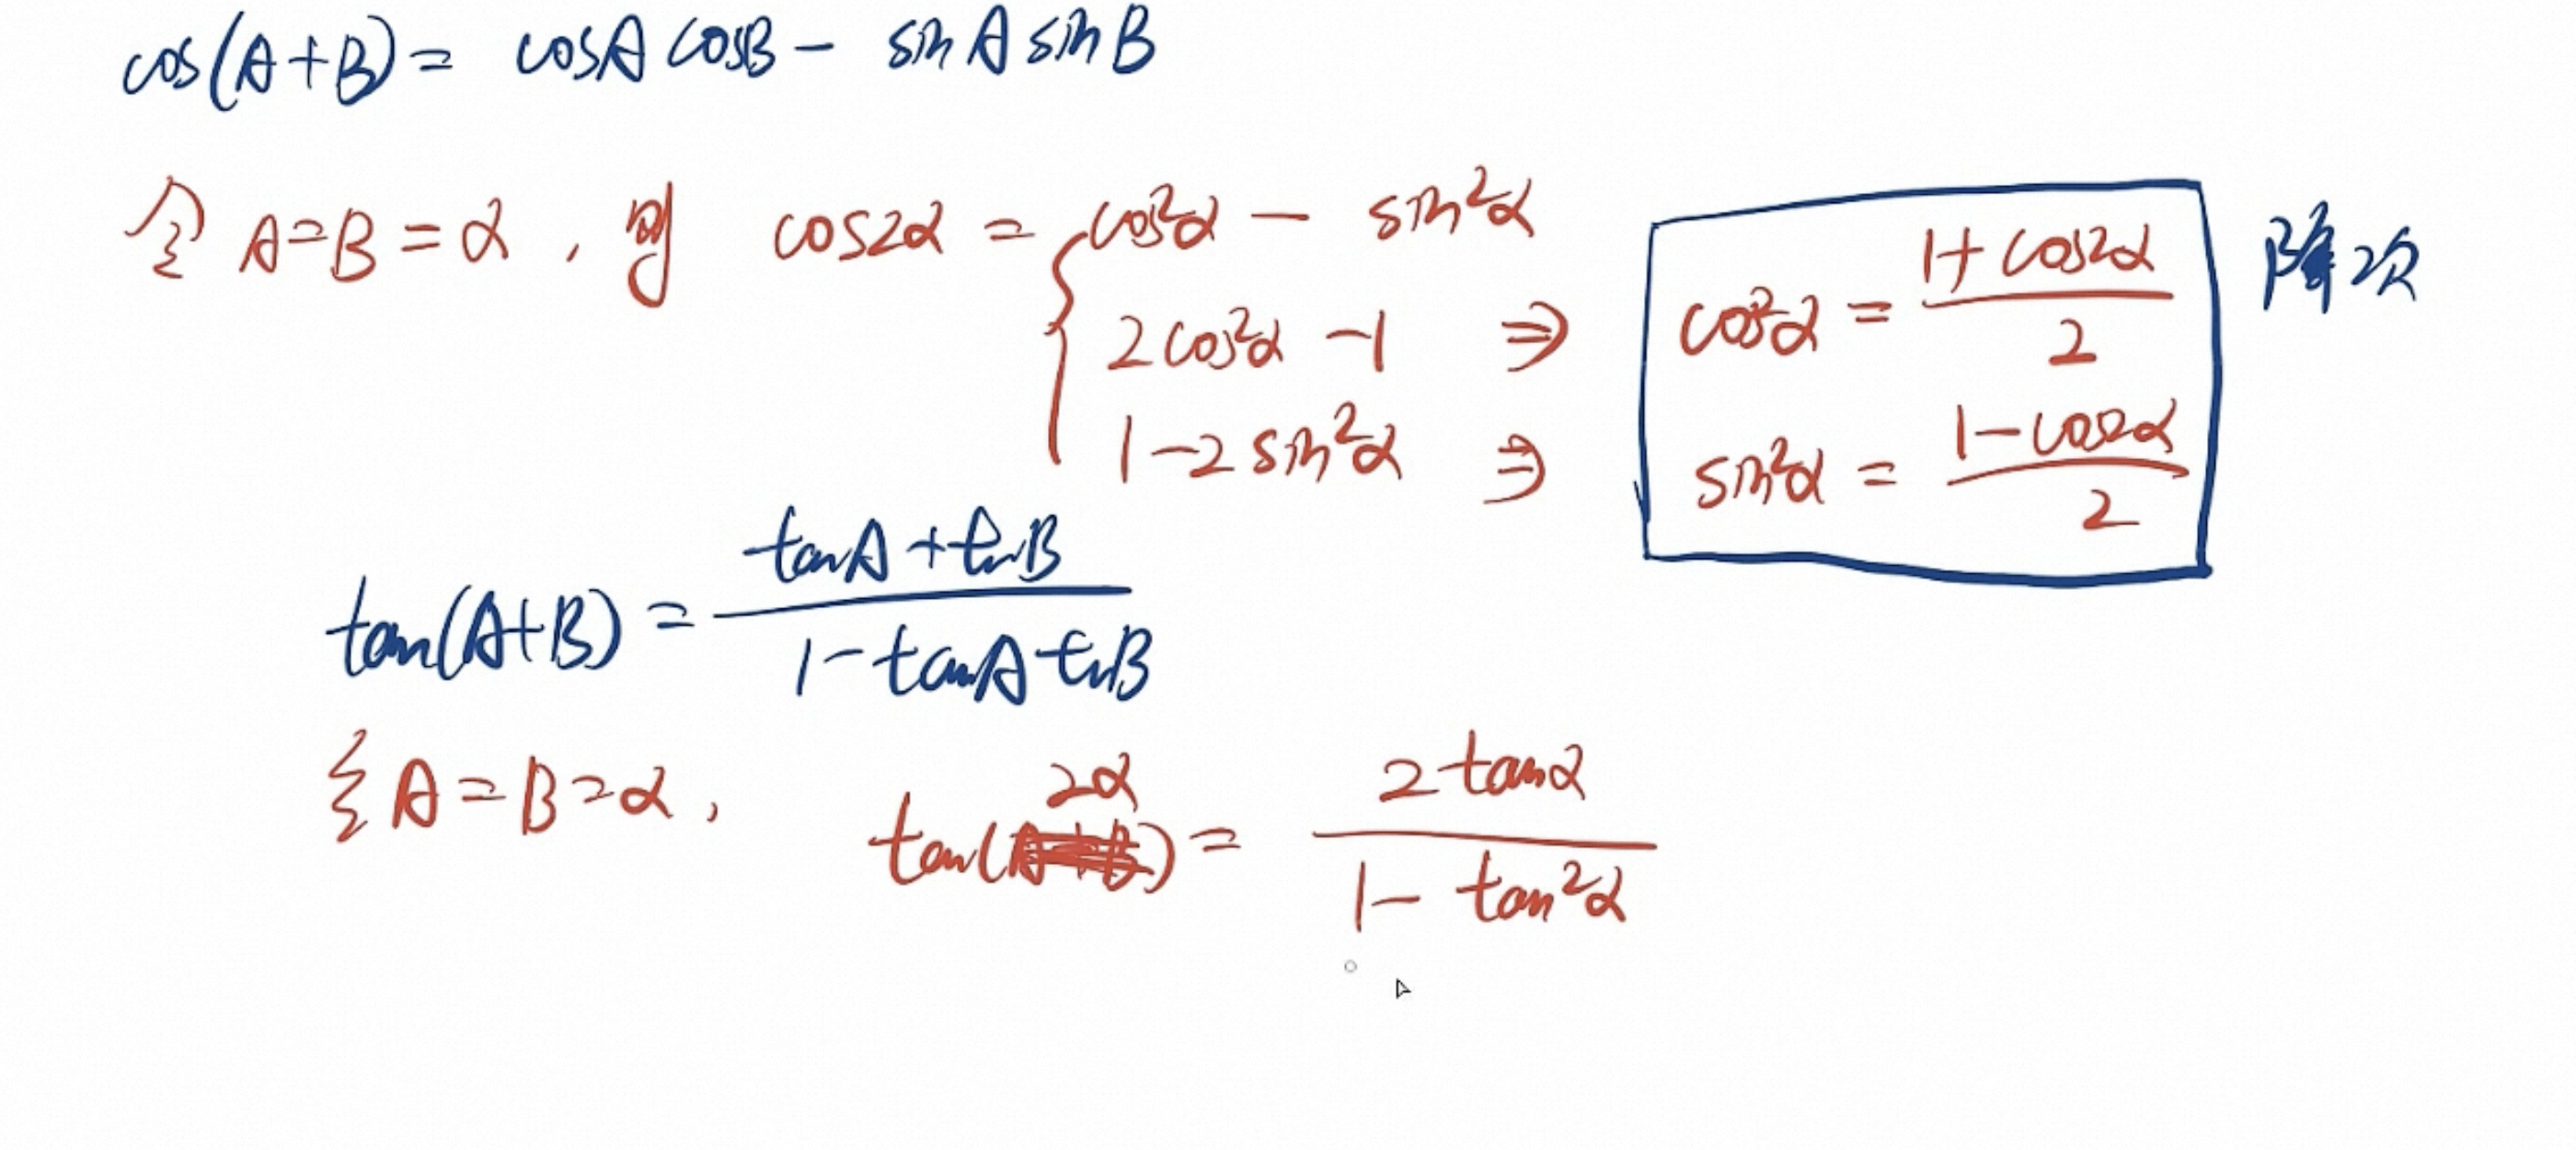 cos(A+B) = cosA cosB - sinA sinB
令 A=B=α , 则 cos2α = { cos²α - sin²α
2cos²α -1 ⇒ cos²α = (1+cos2α)/2 降次
1-2sin²α ⇒ sin²α = (1-cos2α)/2
tan(A+B) = (tanA+tanB)/(1-tanA tanB)
令 A=B=α , tan(2α) = (2tanα)/(1-tan²α)